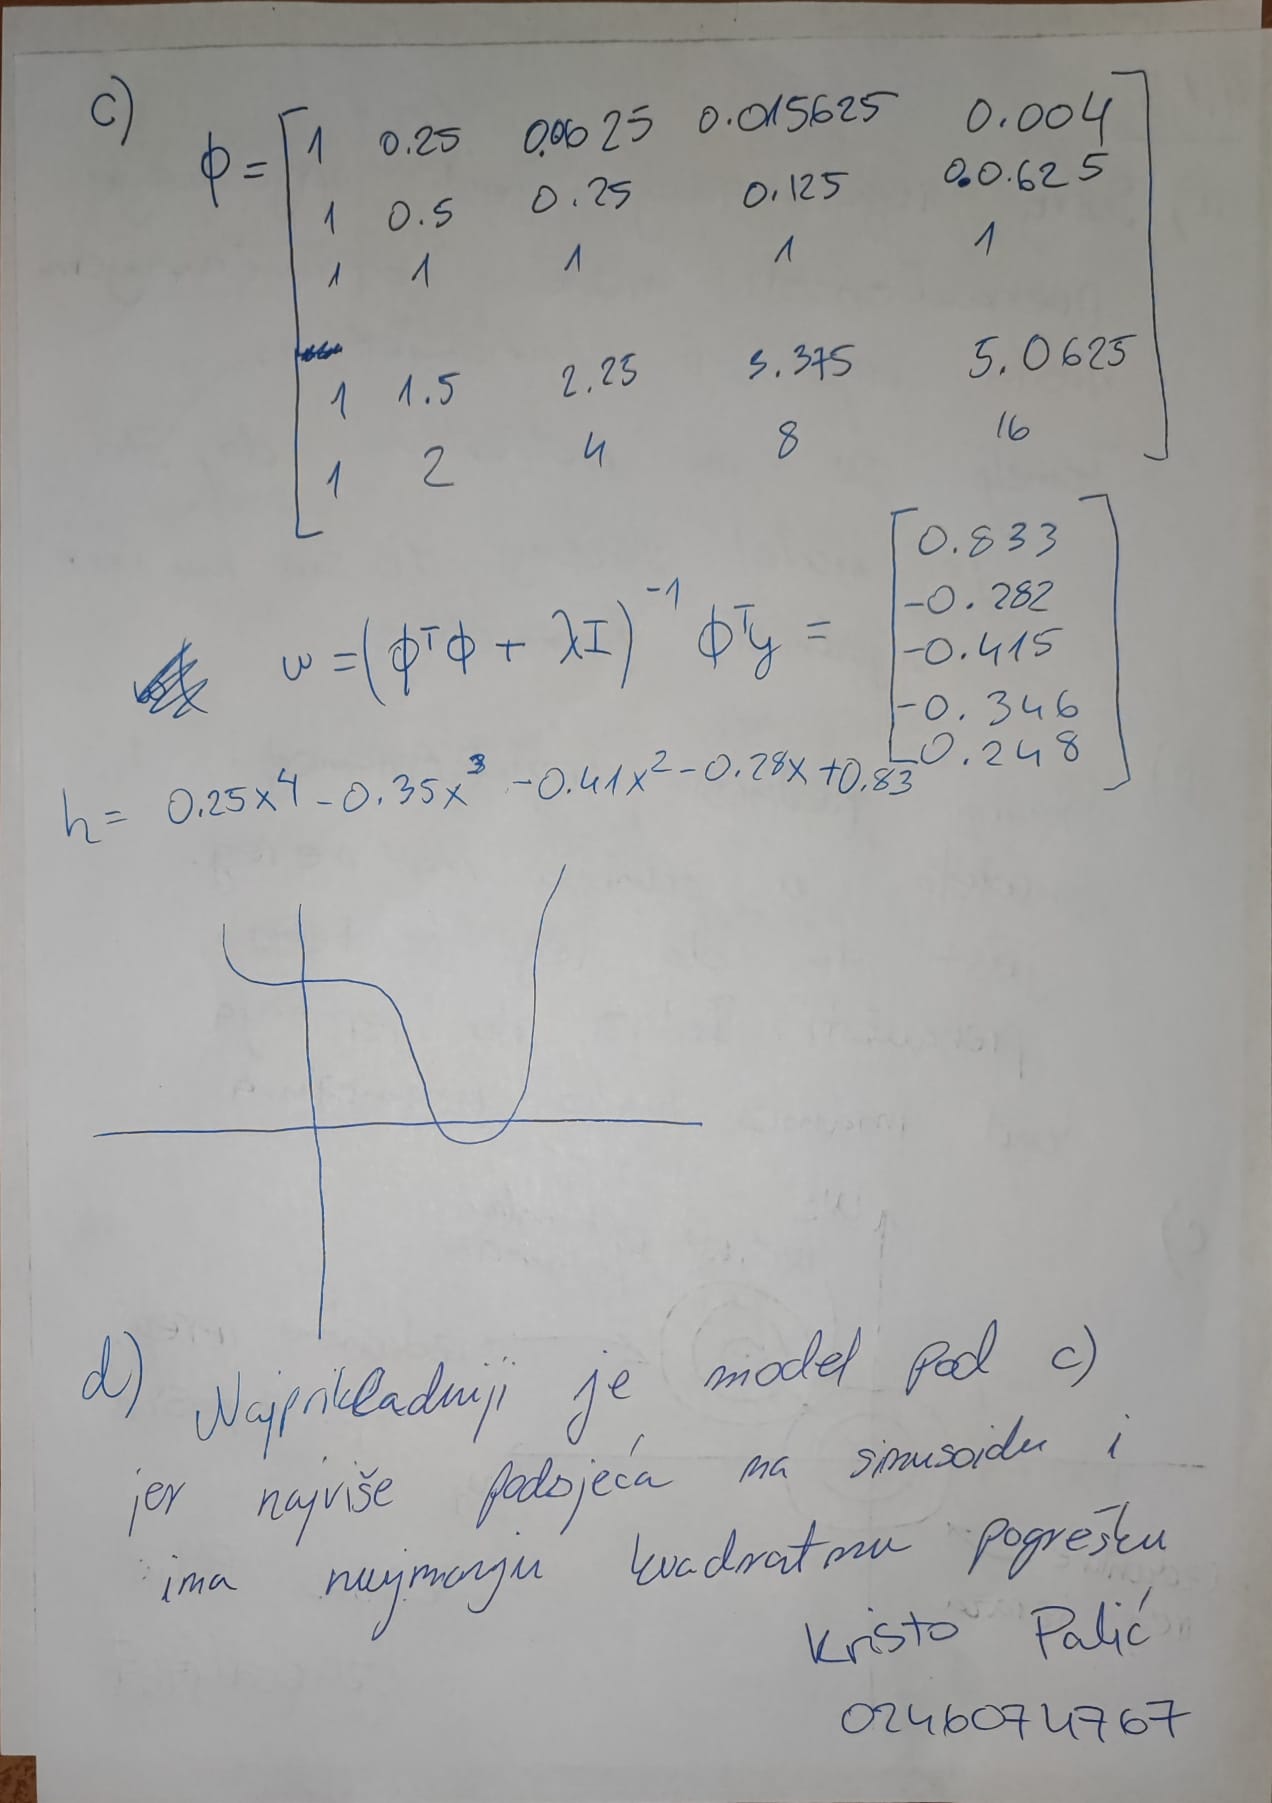 c)
ϕ = [ 1 0.25 0.0625 0.015625 0.004
1 0.5 0.25 0.125 0.0.625
1 1 1 1 1
1 1.5 2.25 3.375 5.0625
1 2 4 8 16 ]
w = (ϕᵀϕ + λI)⁻¹ ϕᵀy = [ 0.833
-0.282
-0.415
-0.346
0.248 ]
h = 0.25x⁴ - 0.35x³ - 0.41x² - 0.28x + 0.83
d) Najprikladniji je model pod c)
jer najviše podsjeća na sinusoidu i
ima najmanju kvadratnu pogrešku
Kristo Palić
0246074767